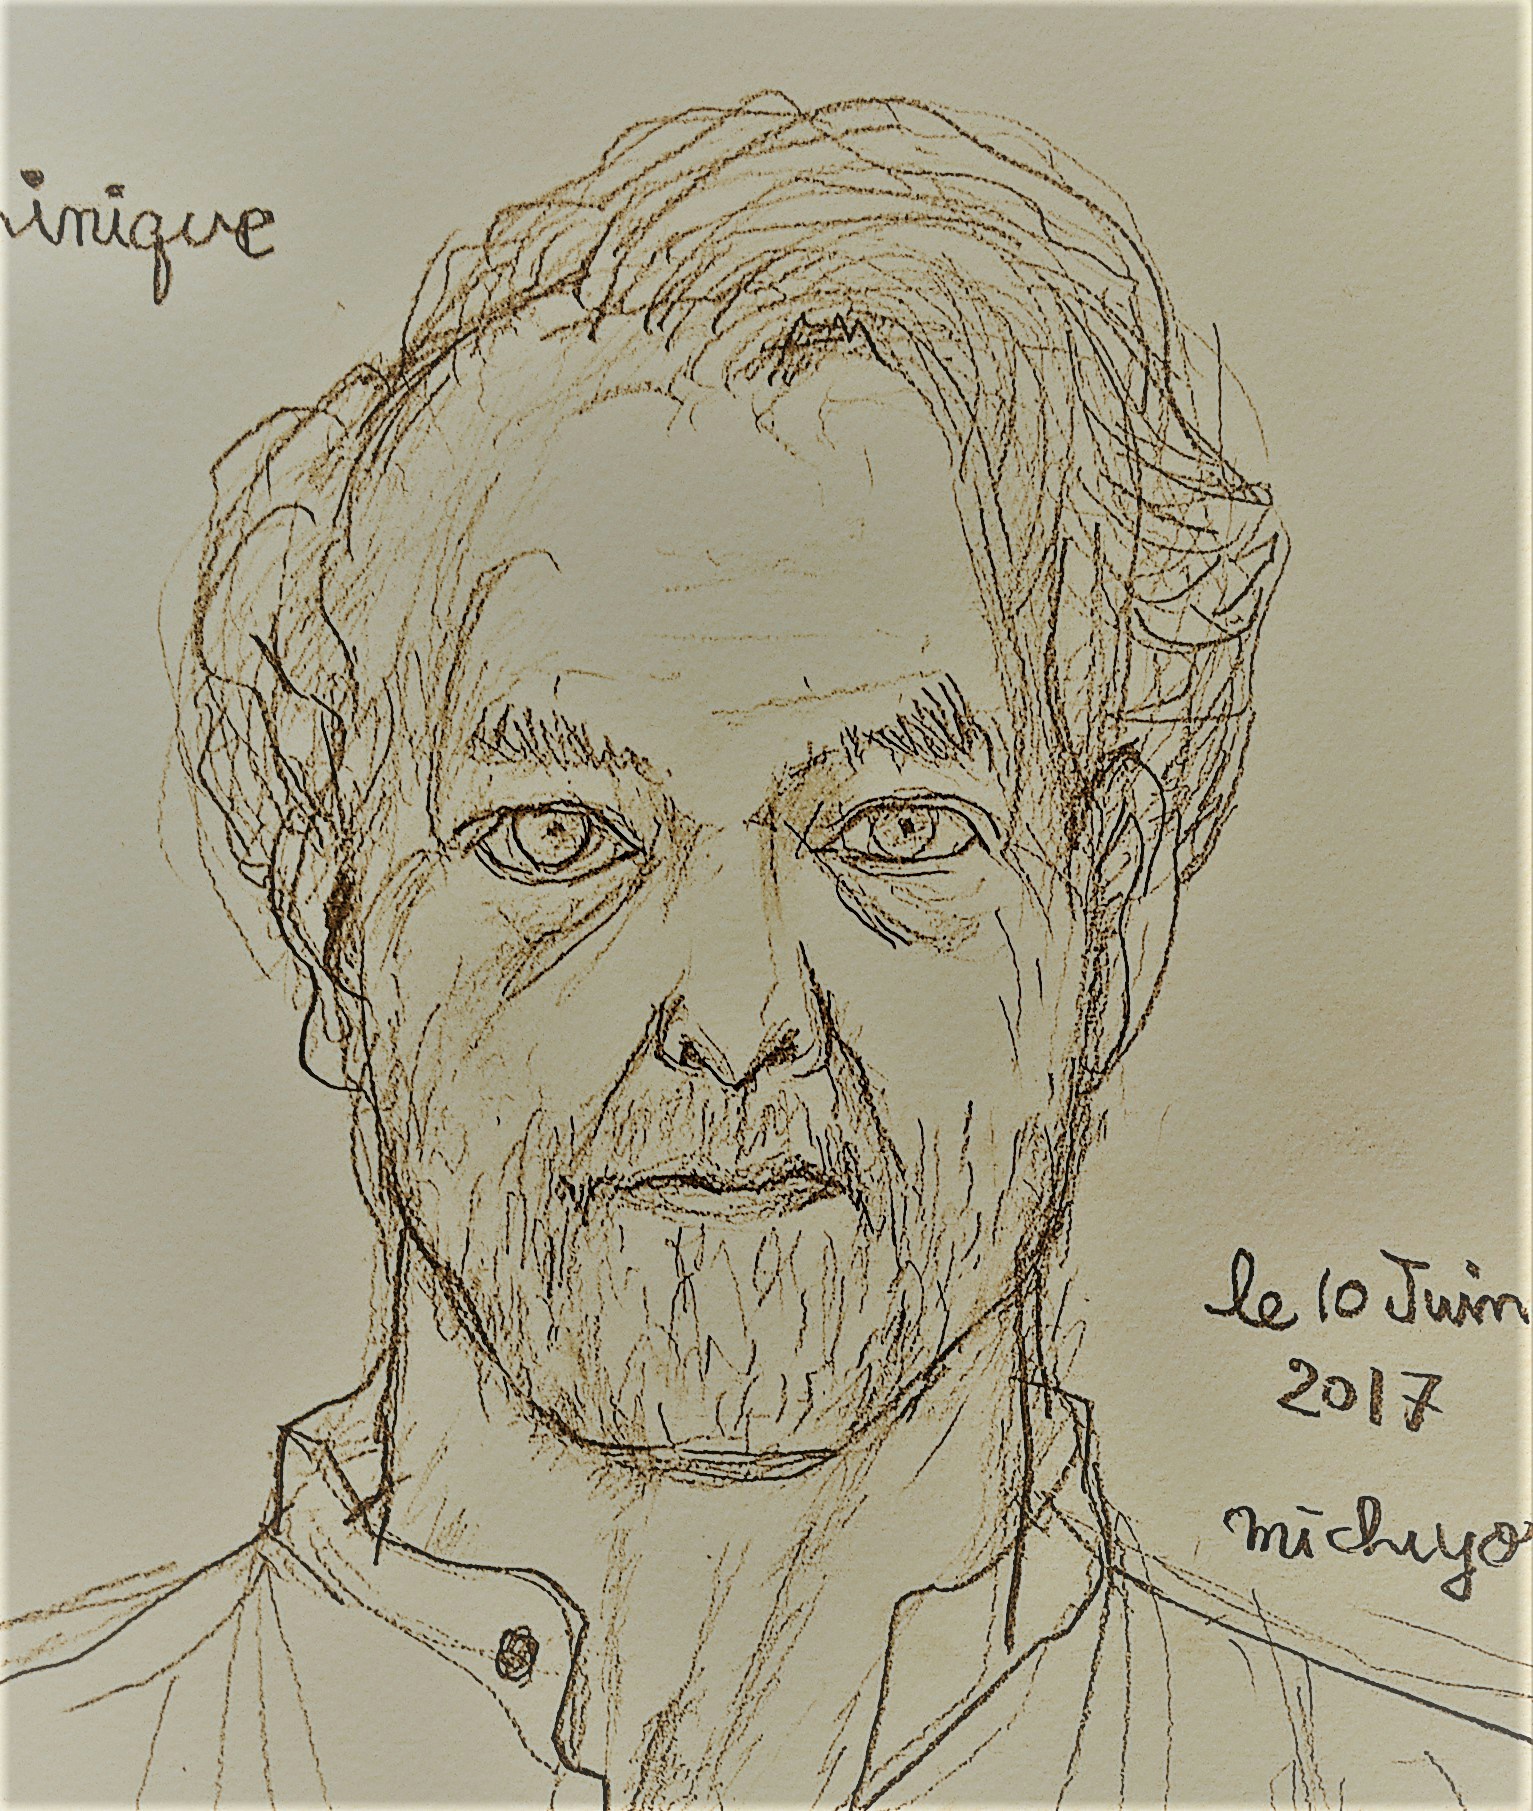 inique
le 10 Juin
2017
michiyo